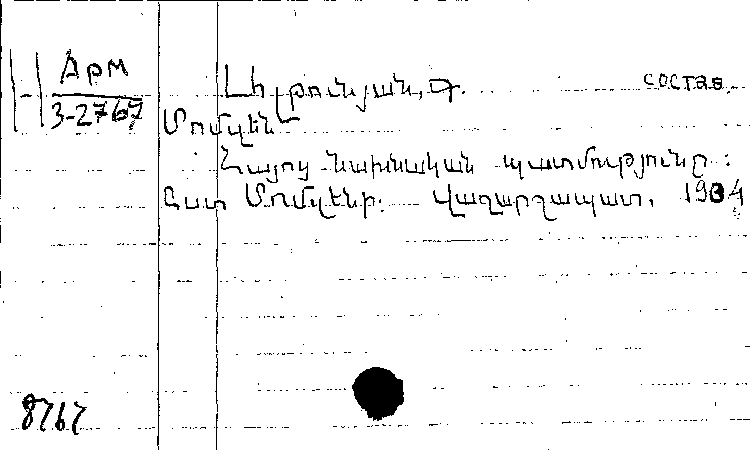 Арм
3-2767
Լիլթունյան, Գ. состав.
Մոմզեն
Հայոց նախնական պատմությունը :
Ըստ Մոմզենի. Վաղարշապատ, 1904
8767